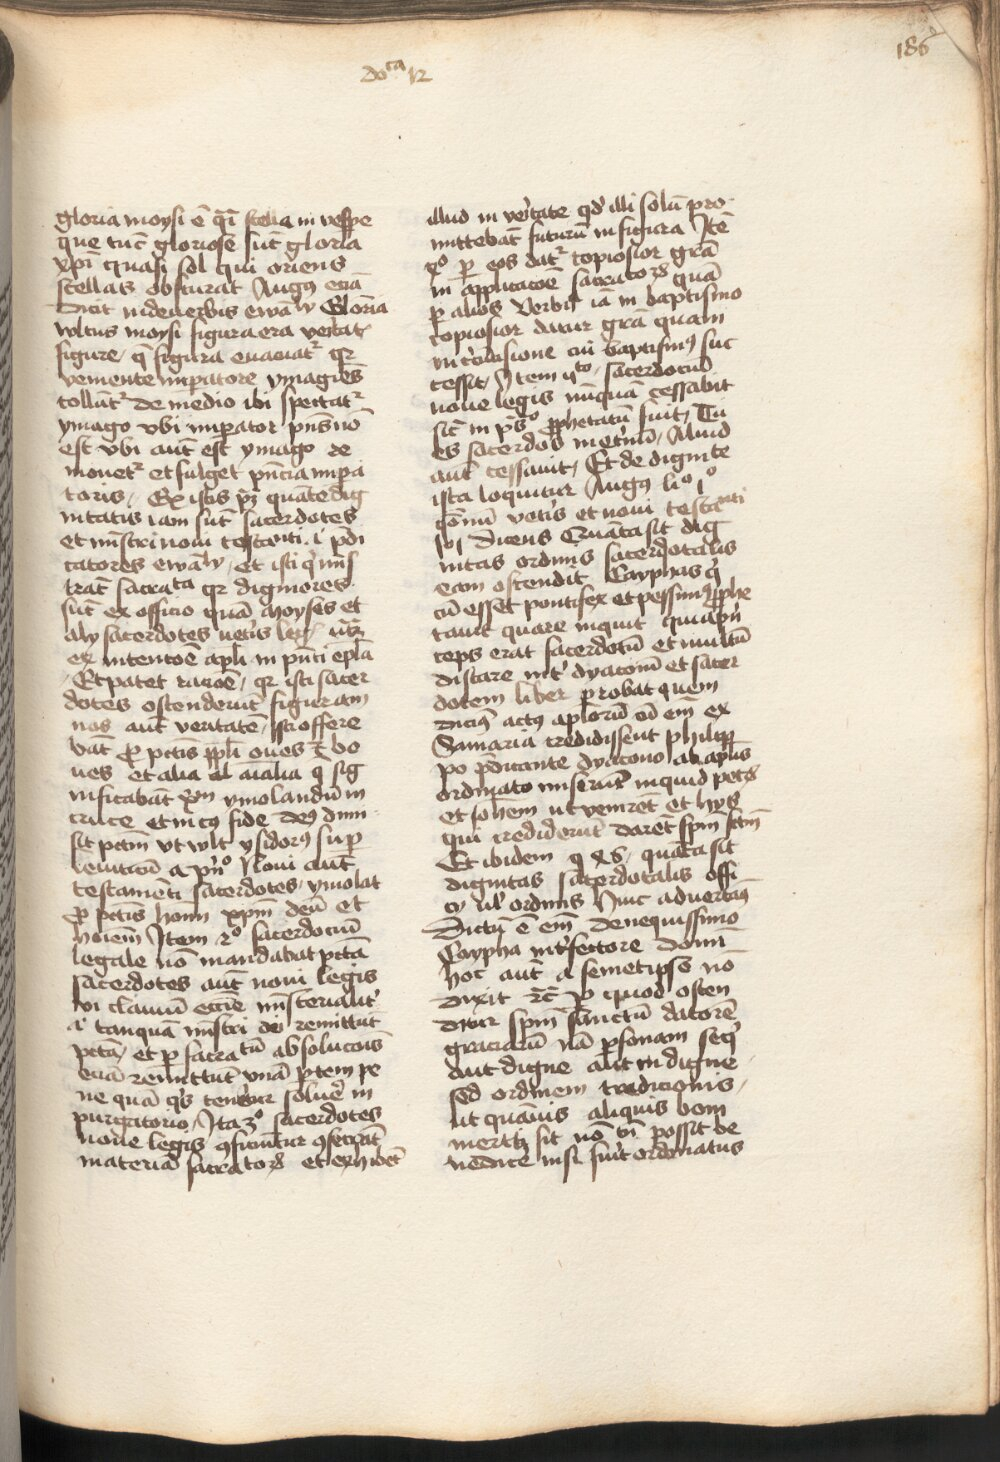 186
do^ca 12
gloria moysi ē q̄i stella in vespe
que tūc gloriose sūt gloria
xpī quasi sol qui oriens
stellas obscurat Augꝰ eciā
dicit in de verbis ewāly Gloria
vltus moysi figura era veritat᷑
figure / q̄ figura euacuat᷑ qr
veniente īmpatore ymagīes
tollūt᷑ de medio ibi spectat᷑
ymago vbi īmperator pn̄s nō
est vbi aut̄ est ymago re
mouet᷑ et fulget pn̄cia īmpa
toris / Ex istis pꝫ quāte dig
nitatis iam sūt sacerdotes
et mīstri noui testam̄ti . i p̄di
catores ewāly / et isti q̇ mīs
trāt sacra^ta qr digniores
sūt ex officio quā Moyses et
aly sacerdotes vetīs leg᷑
ex intencoē apl̄i in pn̄ti epl̄a
Et patet racoē / qr isti sacer
dotes ostenderūt figuram
nos aut̄ veritatē / Isti offere
bāt ꝓ pctīs ppl̄i oues ⁊ bo
ues et alia aīalia q̄ sig
nificabāt xpm̄ ymolandū in
cruce et in cꝰ fide deꝰ dimi
sit pctm̄ vt wlt ysidorꝰ suꝑ
leuiticū a pn̊ Noui aut̄
testamēti sacerdotes / ymolāt
ꝓ pctīs hoīm xpm̄ deū et
hoiēm Item 2º sacerdociū
legale nō mandabat pctā
sacerdotes aut̄ noui legis
vi clauiū eccīe mīsterialit᷑
a tanquā mīstri dei remittūt
pctā / et ꝑ sacra^tū absolucōis
eciā remittūt vnā ꝑtem pe
ne quā q̇s tenetur soluē in
purgatorio / Ita 3º sacerdotes
noue legis ꝯficiūtur ꝯsecrāt
materiā sacra^torꝝ et exhidēt
illud in veritate qd̓ illi solū pro
mittebāt futurū in figura Itē
qº ꝑ eos dat᷑ copiosior grā
in applicacōe sacra^torꝝ quā
ꝑ alios Verbi ia in baptismo
copiosior datur grā quam
in ꝯcisione cui baptismꝰ suc
cessit / Item 4^to / sacerdociū
noue legis nūquā cessabit
sic̄ in ps̊ ꝓphetatū fuit / Tu
es sacerdos in et̓nū / Aliud
aut̄ cessauit / Et de dignite
ista loquitur Augꝰ liº
q̄onū vetīs et noui testa^nti
dicens Quāta sit dig
nitas ordinis sacerdotalis
eam ostendit Cayphas q̇
cū esset pontifex et pessimꝰ ꝓphe
tauit quare inquit quia pn̄
ceps erat sacerdotū et multū
distare int̓ dyaconū et sacer
dotem liber probat quem
dicimꝰ actꝰ apl̄orū cū em̄ ex
Samaria credidissent philip
po p̄dicante dyacono ab apl̄is
ordinato miserūt inquid petꝝ
et Joh̄em vt venirēt et hijs
qui crediderūt darēt spm̄ sctm̄
Et ibidem quāta sit
dignitas sacerdotalis offi
cij vl̓ ordinis Hinc aduertamꝰ
Dictū ē em̄ de nequissimo
Caypha int̓fectore domī
hoc aut̄ a semetipso nō
dixit ⁊c̄ Per quod osten
ditur spm̄ sanctū datorē
graciarū nā ꝑsonam seqi
aut digne aut indigne
sed ordinem tradicionis /
ut quāuis aliquis boni
meriti sit nō tn̄ possit be
nedicē nisi fuit ordinatus